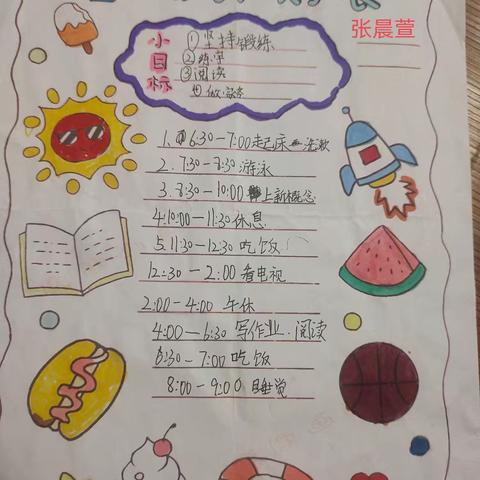 张晨萱
小目标
①坚持锻练
②练字
③阅读
④做家务
1. 6:30-7:00起床 洗漱
2. 7:30-8:30游泳
3. 8:30-10:00上新概念
4.10:00-11:30休息
5.11:30-12:30吃饭
12:30-2:00看电视
2:00-4:00 午休
4:00-6:30写作业.阅读
6:30-7:00吃饭
8:00-9:00 睡觉